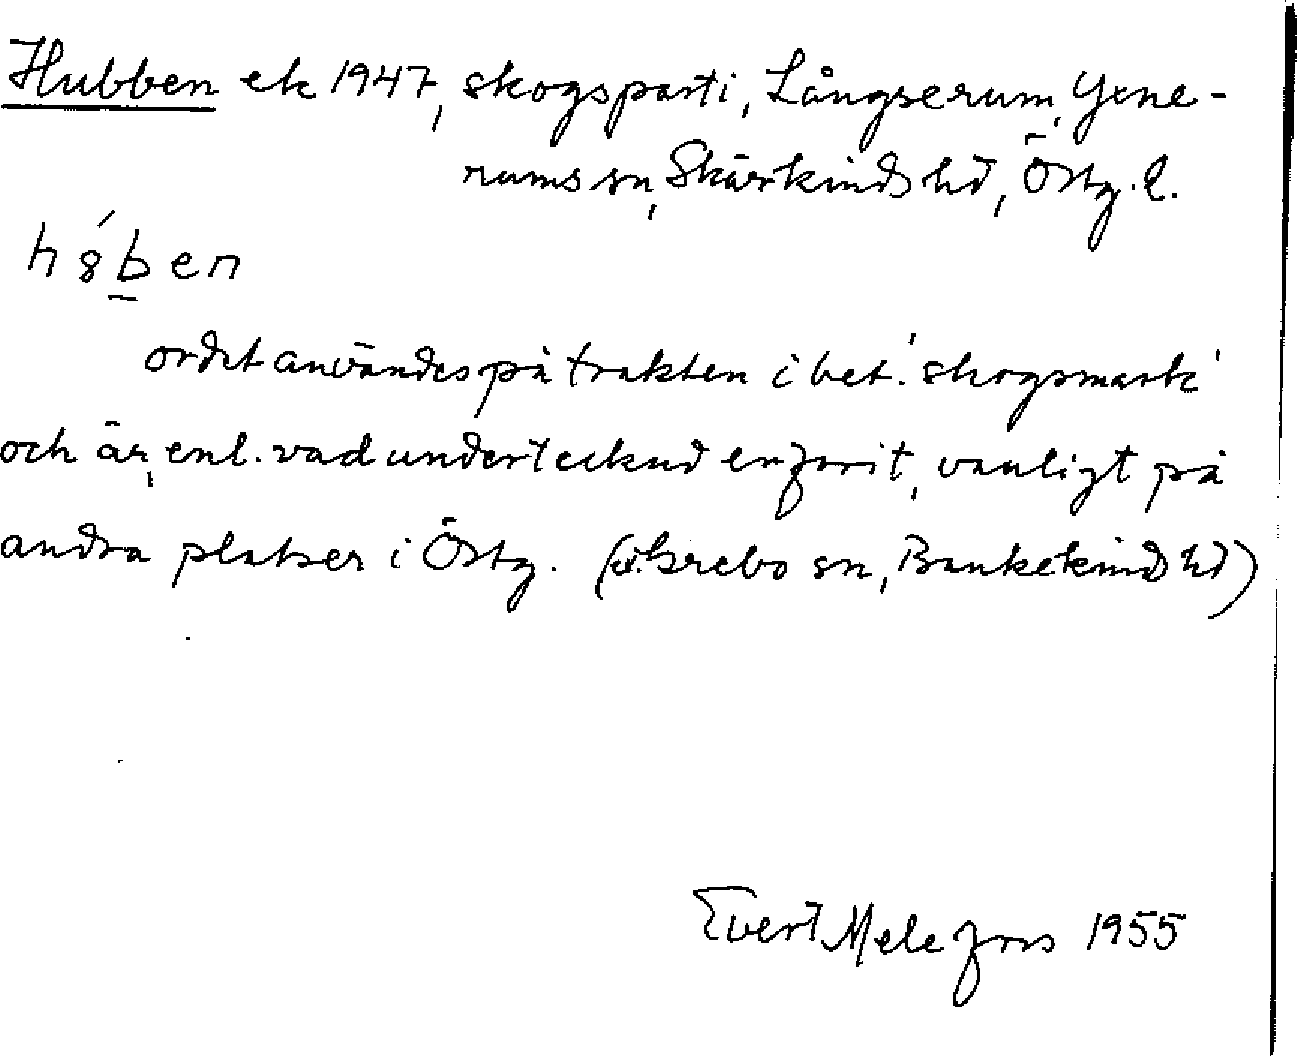 Hubben ek 1947, skogsparti, Långserum, Yxne-
rums sn, Skärkinds hd, Östg. l.
h8́ben
ordet användes på trakten i bet. 'skogsmark'
och är, enl. vad undertecknad erfarit, vanligt på
andra platser i Östg. (Grebo sn, Bankekinds hd)
Evert Melefors 1955